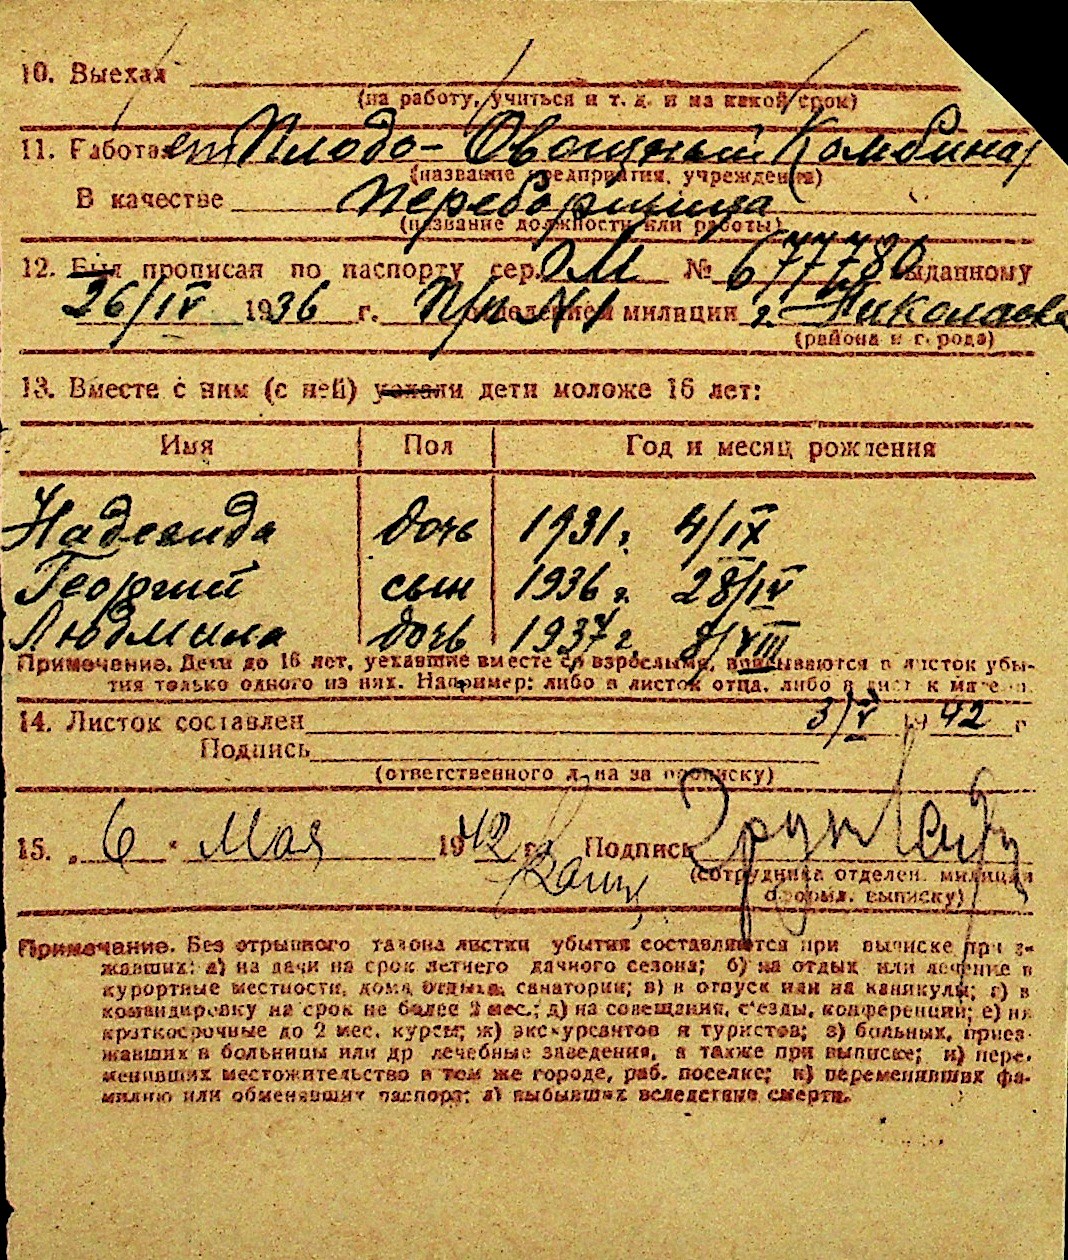 10. Выехал
(на работу, учиться и т. д. и на какой срок)
11. Работает Плодо-Овощный Комбинат
(название предприятия, учреждения)
В качестве Переборщица
(название должности или работы)
12. Был прописан по паспорту сер. ОМ № 677780 выданному
26/IV 1936 г. П/п N1 отделением милиции г. Николаев
(района и города)
13. Вместе с ним (с ней) уехали дети моложе 16 лет:
Имя Пол Год и месяц рождения
Надежида дочь 1931 г. 4/IX
Георгий сын 1936 г. 28/IV
Людмила дочь 1937 г. 8/VIII
Примечание. Дети до 16 лет, уехавшие вместе со взрослыми, вписываются в листок убы-
тия только одного из них. Например: либо в листок отца, либо в листок матери.
14. Листок составлен 3/V 1942 г
Подпись
(ответственного лица за прописку)
15. „6" Мая 1942 г. Подпись
(сотрудника отделен. милиции
оформл. выписку)
Примечание. Без отрывного талона листки убытия составляются при выписке приез-
жавших: а) на дачи на срок летнего дачного сезона; б) на отдых или лечение в
курортные местности, дома отдыха, санатории; в) в отпуск или на каникулы; г) в
командировку на срок не более 2 мес.; д) на совещания, съезды, конференции; е) на
краткосрочные до 2 мес. курсы; ж) экскурсантов и туристов; з) больных, приез-
жавших в больницы или др лечебные заведения, а также при выписке; и) пере-
менивших местожительство в том же городе, раб. поселке; к) переменивших фа-
милию или обменявших паспорт; л) выбывших вследствие смерти.